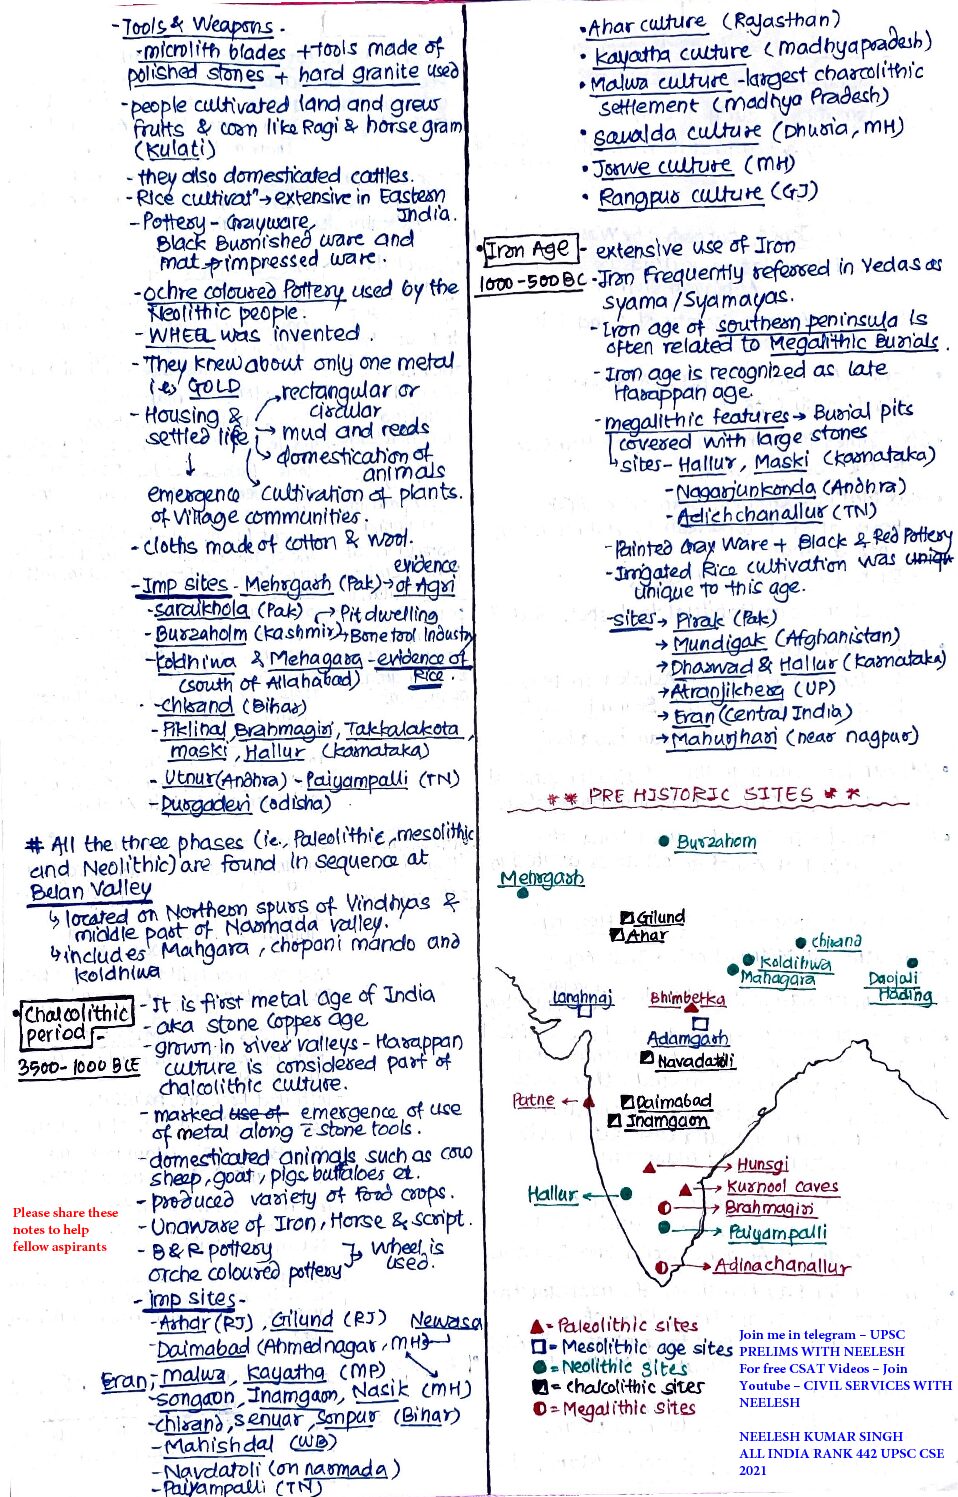 - Tools & Weapons.
- microlith blades + tools made of
polished stones + hard granite used
- people cultivated land and grew
fruits & corn like Ragi & horse gram
(Kulati)
- they also domesticated cattles.
- Rice cultivatn → extensive in Eastern
India.
- Pottery - Grayware,
Black Burnished ware and
mat impressed ware.
- ochre coloured Pottery used by the
Neolithic people.
- WHEEL was invented.
- They knew about only one metal
i.e, GOLD
- Housing & settled life
→ rectangular or
circular
→ mud and reeds
→ domestication of
animals
→ cultivation of plants.
↓
emergence
of village communities.
- cloths made of cotton & wool.
- Imp sites - Mehrgarh (Pak) → evidence
of Agri
- saraikhola (Pak)
- Burzaholm (Kashmir) → Pit dwelling
→ Bone tool Industry
- Koldhiwa & Mehagara - evidence of
(south of Allahabad) Rice.
- chirand (Bihar)
- Piklihal, Brahmagiri, Takkalakota,
maski, Hallur (Karnataka)
- Utnur (Andhra) - Paiyampalli (TN)
- Durgadevi (odisha)
# All the three phases (i.e., Paleolithic, mesolithic
and Neolithic) are found in sequence at
Belan Valley
↳ located on Northern spurs of Vindhyas &
middle part of Narmada valley.
↳ includes Mahgara, chopani mando and
koldhiwa
• Chalcolithic
period -
3500-1000 BCE
- It is first metal age of India
- aka stone copper age
- grown in river valleys - Harappan
culture is considered part of
chalcolithic culture.
- marked use of emergence of use
of metal along c̄ stone tools.
- domesticated animals such as cow
sheep, goat, pigs, buffaloes et.
- produced variety of food crops.
- Unaware of Iron, Horse & script.
- B & R pottery
orche coloured pottery
→ wheel is
used.
- imp sites -
- Ahar (RJ), Gilund (RJ) Newasa
- Daimabad (Ahmednagar, MH)
Eran; - malwa, Kayatha (MP)
- songaon, Inamgaon, Nasik (MH)
- chirand, senuar, sonpur (Bihar)
- Mahishdal (WB)
- Navdatoli (on narmada)
- Paiyampalli (TN)
Please share these
notes to help
fellow aspirants
• Ahar culture (Rajasthan)
• Kayatha culture (madhyapradesh)
• Malwa culture - largest charcolithic
settlement (madhya Pradesh)
• savalda culture (Dhuria, MH)
• Jorwe culture (MH)
• Rangpur culture (GJ)
• Iron Age - extensive use of Iron
1000-500 BC - Iron Frequently referred in Vedas as
syama / Syamayas.
- Iron age of southern peninsula is
often related to Megalithic Burials.
- Iron age is recognized as late
Harappan age.
- megalithic features → Burial pits
covered with large stones
↳ sites - Hallur, Maski (Karnataka)
- Nagarjunkonda (Andhra)
- Adichchanallur (TN)
- Painted Gray Ware + Black & Red Pottery
- Irrigated Rice cultivation was uniqu
unique to this age.
- sites → Pirak (Pak)
→ Mundigak (Afghanistan)
→ Dharwad & Hallur (Karnataka)
→ Atranjikhera (UP)
→ Eran (Central India)
→ Mahurjhari (near nagpur)
** PRE HISTORIC SITES **
Burzahom
Mehrgarh
Gilund
Ahar
chirand
Koldihwa
Mahagara
Daojali
Hading
Langhnaj
Bhimbetka
Adamgarh
Navadatoli
Patne
Daimabad
Inamgaon
Hunsgi
Hallur
Kurnool caves
Brahmagiri
Paiyampalli
Adinachanallur
▲ = Paleolithic sites
□ = Mesolithic age sites
● = Neolithic sites
= chalcolithic sites
= Megalithic sites
Join me in telegram – UPSC
PRELIMS WITH NEELESH
For free CSAT Videos – Join
Youtube – CIVIL SERVICES WITH
NEELESH
NEELESH KUMAR SINGH
ALL INDIA RANK 442 UPSC CSE
2021